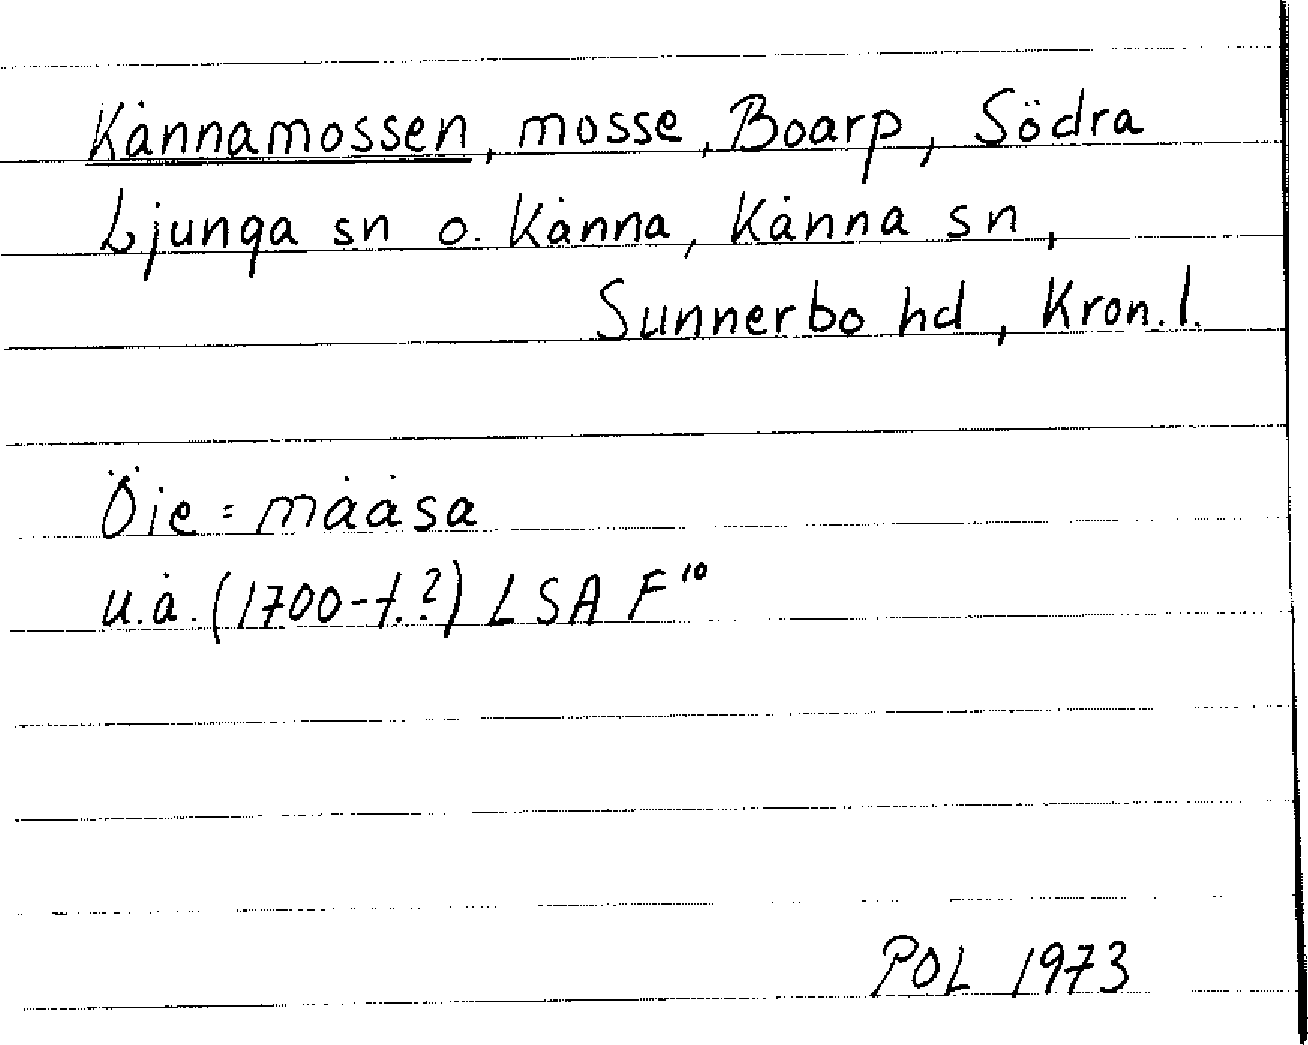 Kånnamossen, mosse, Boarp, Södra
Ljunga sn o. Kånna, Kånna sn,
Sunnerbo hd, Kron.l.
Öie = mååsa
u.å. (1700-t.?) LSA F¹⁰
POL 1973